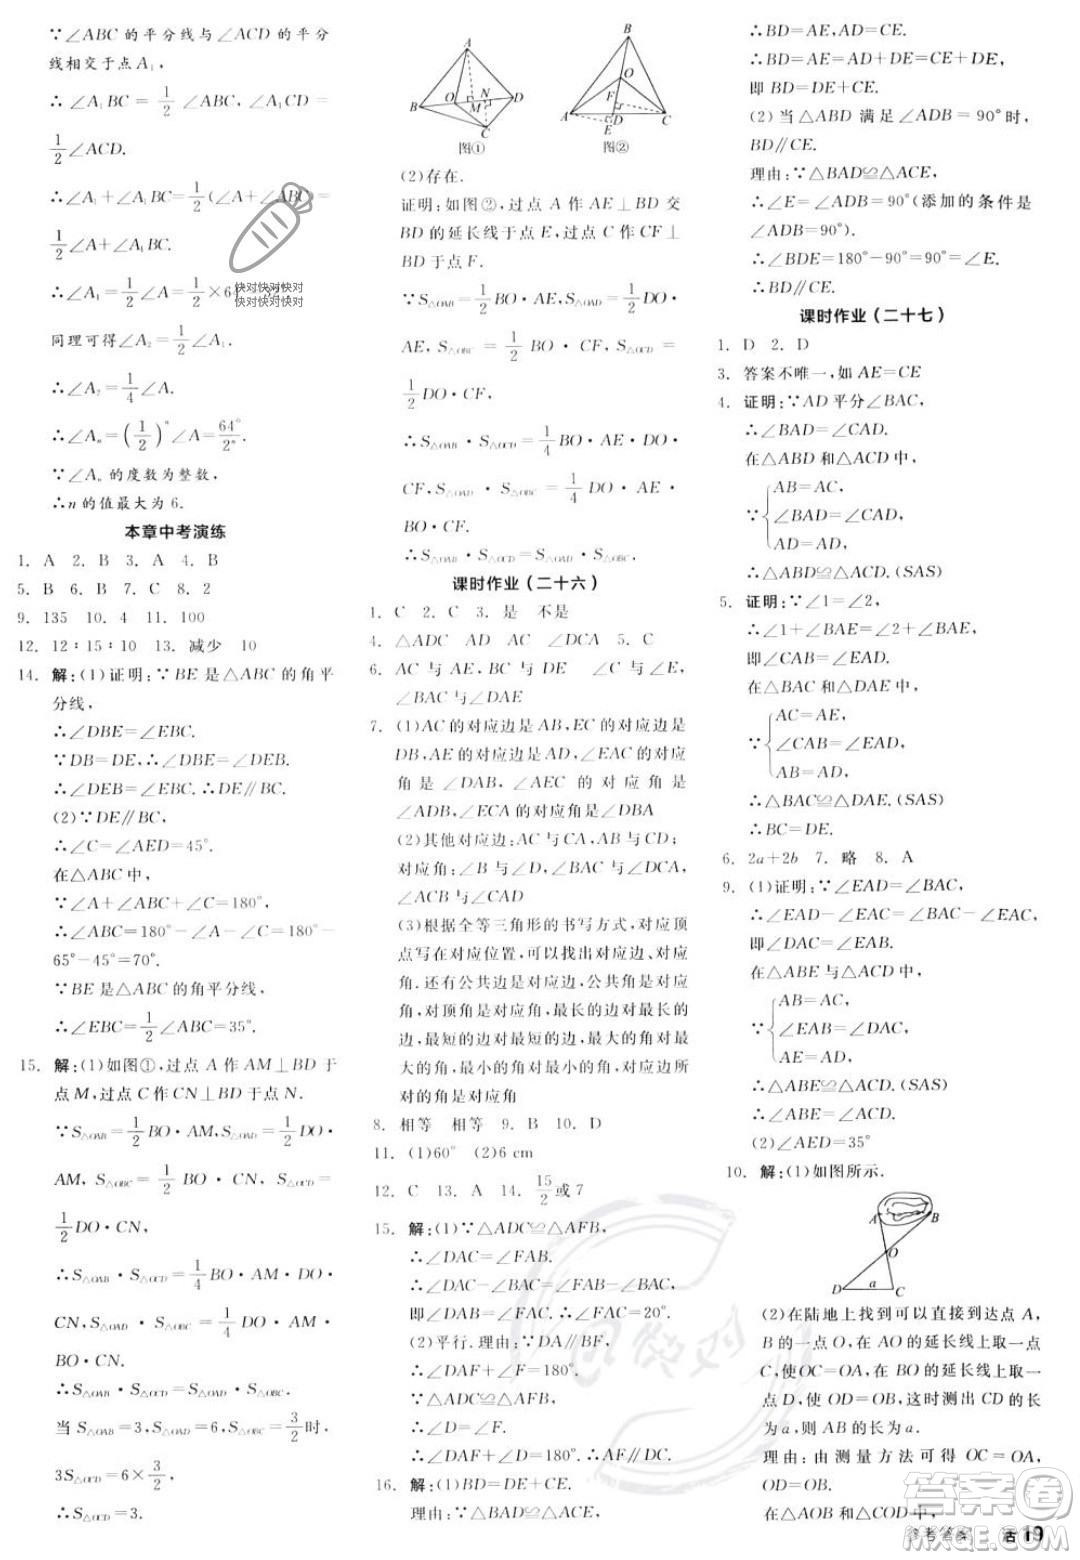 ∵∠ABC的平分线与∠ACD的平分
线相交于点A₁,
∴∠A₁BC=1/2∠ABC,∠A₁CD=
1/2∠ACD.
∴∠A₁+∠A₁BC=1/2(∠A+∠ABC)=
1/2∠A+∠A₁BC.
∴∠A₁=1/2∠A=1/2×64
同理可得∠A₂=1/4∠A₁
∴∠A₂=1/4∠A.
∴∠Aₙ=(1/2)ⁿ∠A=64°/2ⁿ.
∵∠Aₙ的度数为整数,
∴n的值最大为6.
本章中考演练
1. A 2. B 3. A 4. B
5. B 6. B 7. C 8. 2
9. 135 10. 4 11. 100
12. 12:15:10 13. 减少 10
14. 解:(1)证明:∵BE是△ABC的角平
分线,
∴∠DBE=∠EBC.
∵DB=DE,∴∠DBE=∠DEB.
∴∠DEB=∠EBC.∴DE∥BC.
(2)∵DE∥BC,
∴∠C=∠AED=45°.
在△ABC中,
∵∠A+∠ABC+∠C=180°,
∴∠ABC=180°-∠A-∠C=180°-
65°-45°=70°.
∵BE是△ABC的角平分线,
∴∠EBC=1/2∠ABC=35°.
15. 解:(1)如图①,过点A作AM⊥BD于
点M,过点C作CN⊥BD于点N.
∵S△OAB=1/2BO·AM,S△OAD=1/2DO·
AM,S△OBC=1/2BO·CN,S△OCD=
1/2DO·CN,
∴S△OAB·S△OCD=1/4BO·AM·DO·
CN,S△OAD·S△OBC=1/4DO·AM·
BO·CN.
∴S△OAB·S△OCD=S△OAD·S△OBC.
当S△OAB=3,S△OAD=6,S△OBC=3/2时,
3S△OCD=6×3/2,
∴S△OCD=3.
A
B
O
M
N
D
C
图①
B
O
F
A
D
E
C
图②
(2)存在.
证明:如图②,过点A作AE⊥BD交
BD的延长线于点E,过点C作CF⊥
BD于点F.
∵S△OAB=1/2BO·AE,S△OAD=1/2DO·
AE,S△OBC=1/2BO·CF,S△OCD=
1/2DO·CF,
∴S△OAB·S△OCD=1/4BO·AE·DO·
CF,S△OAD·S△OBC=1/4DO·AE·
BO·CF.
∴S△OAB·S△OCD=S△OAD·S△OBC.
课时作业(二十六)
1. C 2. C 3. 是 不是
4. △ADC AD AC ∠DCA 5. C
6. AC与AE,BC与DE ∠C与∠E,
∠BAC与∠DAE
7. (1)AC的对应边是AB,EC的对应边是
DB,AE的对应边是AD,∠EAC的对应
角是∠DAB,∠AEC的对应角是
∠ADB,∠ECA的对应角是∠DBA
(2)其他对应边:AC与CA,AB与CD;
对应角:∠B与∠D,∠BAC与∠DCA,
∠ACB与∠CAD
(3)根据全等三角形的书写方式,对应顶
点写在对应位置,可以找出对应边、对应
角.还有公共边是对应边,公共角是对应
角,对顶角是对应角,最长的边对最长的
边,最短的边对最短的边,最大的角对最
大的角,最小的角对最小的角,对应边所
对的角是对应角
8. 相等 相等 9. B 10. D
11. (1)60° (2)6 cm
12. C 13. A 14. 15/2或7
15. 解:(1)∵△ADC≌△AFB,
∴∠DAC=∠FAB.
∴∠DAC-∠BAC=∠FAB-∠BAC,
即∠DAB=∠FAC.∴∠FAC=20°.
(2)平行.理由:∵DA∥BF,
∴∠DAF+∠F=180°.
∵△ADC≌△AFB,
∴∠D=∠F.
∴∠DAF+∠D=180°.∴AF∥DC.
16. 解:(1)BD=DE+CE.
理由:∵△BAD≌△ACE,
∴BD=AE,AD=CE.
∴BD=AE=AD+DE=CE+DE,
即BD=DE+CE.
(2)当△ABD满足∠ADB=90°时,
BD∥CE.
理由:∵△BAD≌△ACE,
∴∠E=∠ADB=90°(添加的条件是
∠ADB=90°).
∴∠BDE=180°-90°=90°=∠E.
∴BD∥CE.
课时作业(二十七)
1. D 2. D
3. 答案不唯一,如AE=CE
4. 证明:∵AD平分∠BAC,
∴∠BAD=∠CAD.
在△ABD和△ACD中,
AB=AC,
∵∠BAD=∠CAD,
AD=AD,
∴△ABD≌△ACD.(SAS)
5. 证明:∵∠1=∠2,
∴∠1+∠BAE=∠2+∠BAE,
即∠CAB=∠EAD.
在△BAC和△DAE中,
AC=AE,
∵∠CAB=∠EAD,
AB=AD,
∴△BAC≌△DAE.(SAS)
∴BC=DE.
6. 2a+2b 7. 略 8. A
9. (1)证明:∵∠EAD=∠BAC,
∴∠EAD-∠EAC=∠BAC-∠EAC,
即∠DAC=∠EAB.
在△ABE与△ACD中,
AB=AC,
∵∠EAB=∠DAC,
AE=AD,
∴△ABE≌△ACD.(SAS)
∴∠ABE=∠ACD.
(2)∠AED=35°
10. 解:(1)如图所示.
A
B
O
D
a
C
(2)在陆地上找到可以直接到达点A,
B的一点O,在AO的延长线上取一点
C,使OC=OA,在BO的延长线上取一
点D,使OD=OB,这时测出CD的长
为a,则AB的长为a.
理由:由测量方法可得OC=OA,
OD=OB.
在△AOB和△COD中,
参考答案 活19
快对快对快对
快对快对快对
答案圈